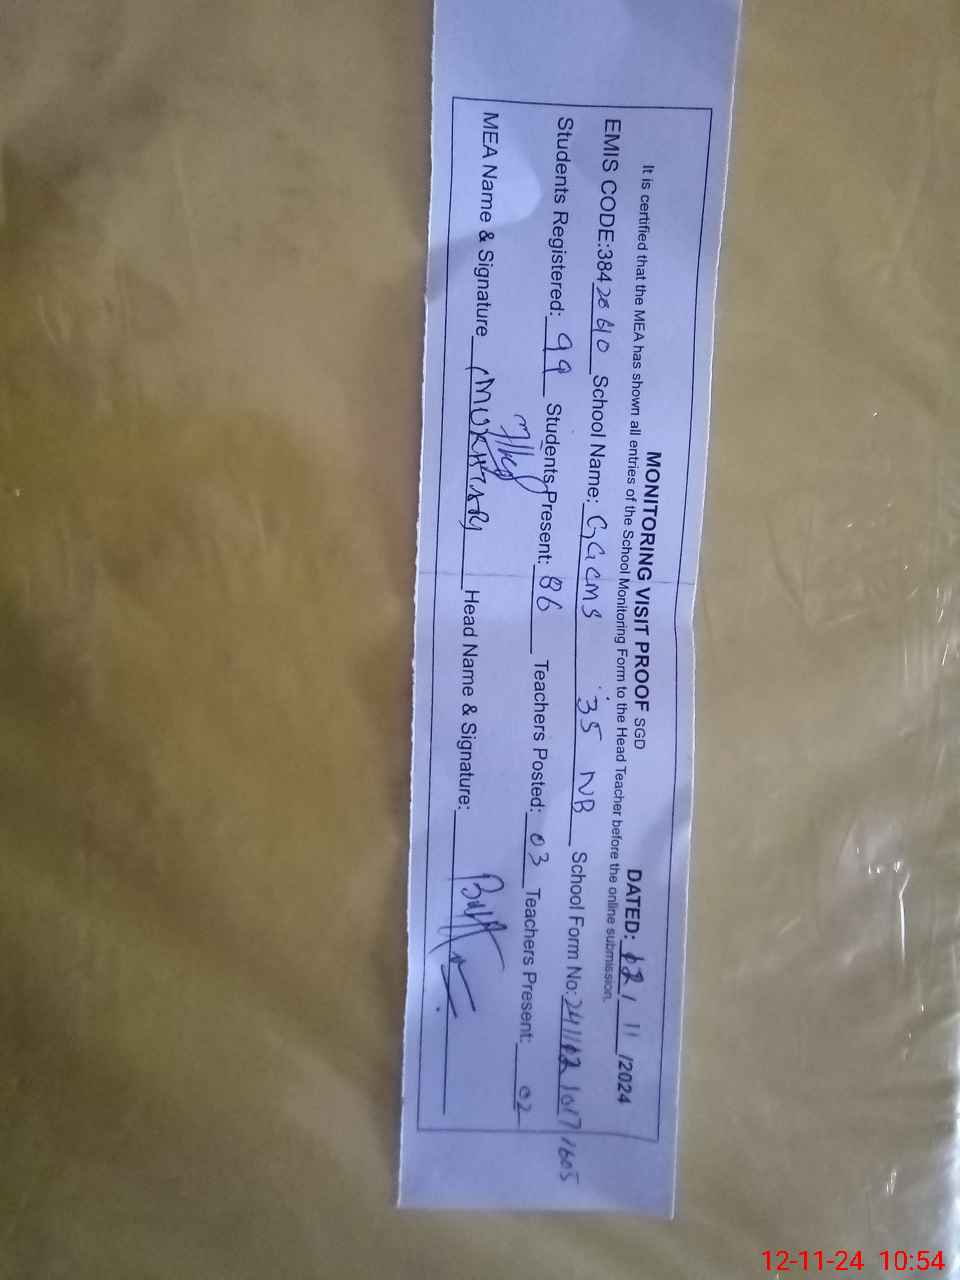 MONITORING VISIT PROOF SGD DATED: 12/11/2024
It is certified that the MEA has shown all entries of the School Monitoring Form to the Head Teacher before the online submission.
EMIS CODE:38420610 School Name: GGCMS 35 NB School Form No: 24111210171605
Students Registered: 99 Students Present: 86 Teachers Posted: 03 Teachers Present: 02
MEA Name & Signature (MUKHTAR) Head Name & Signature:
12-11-24 10:54